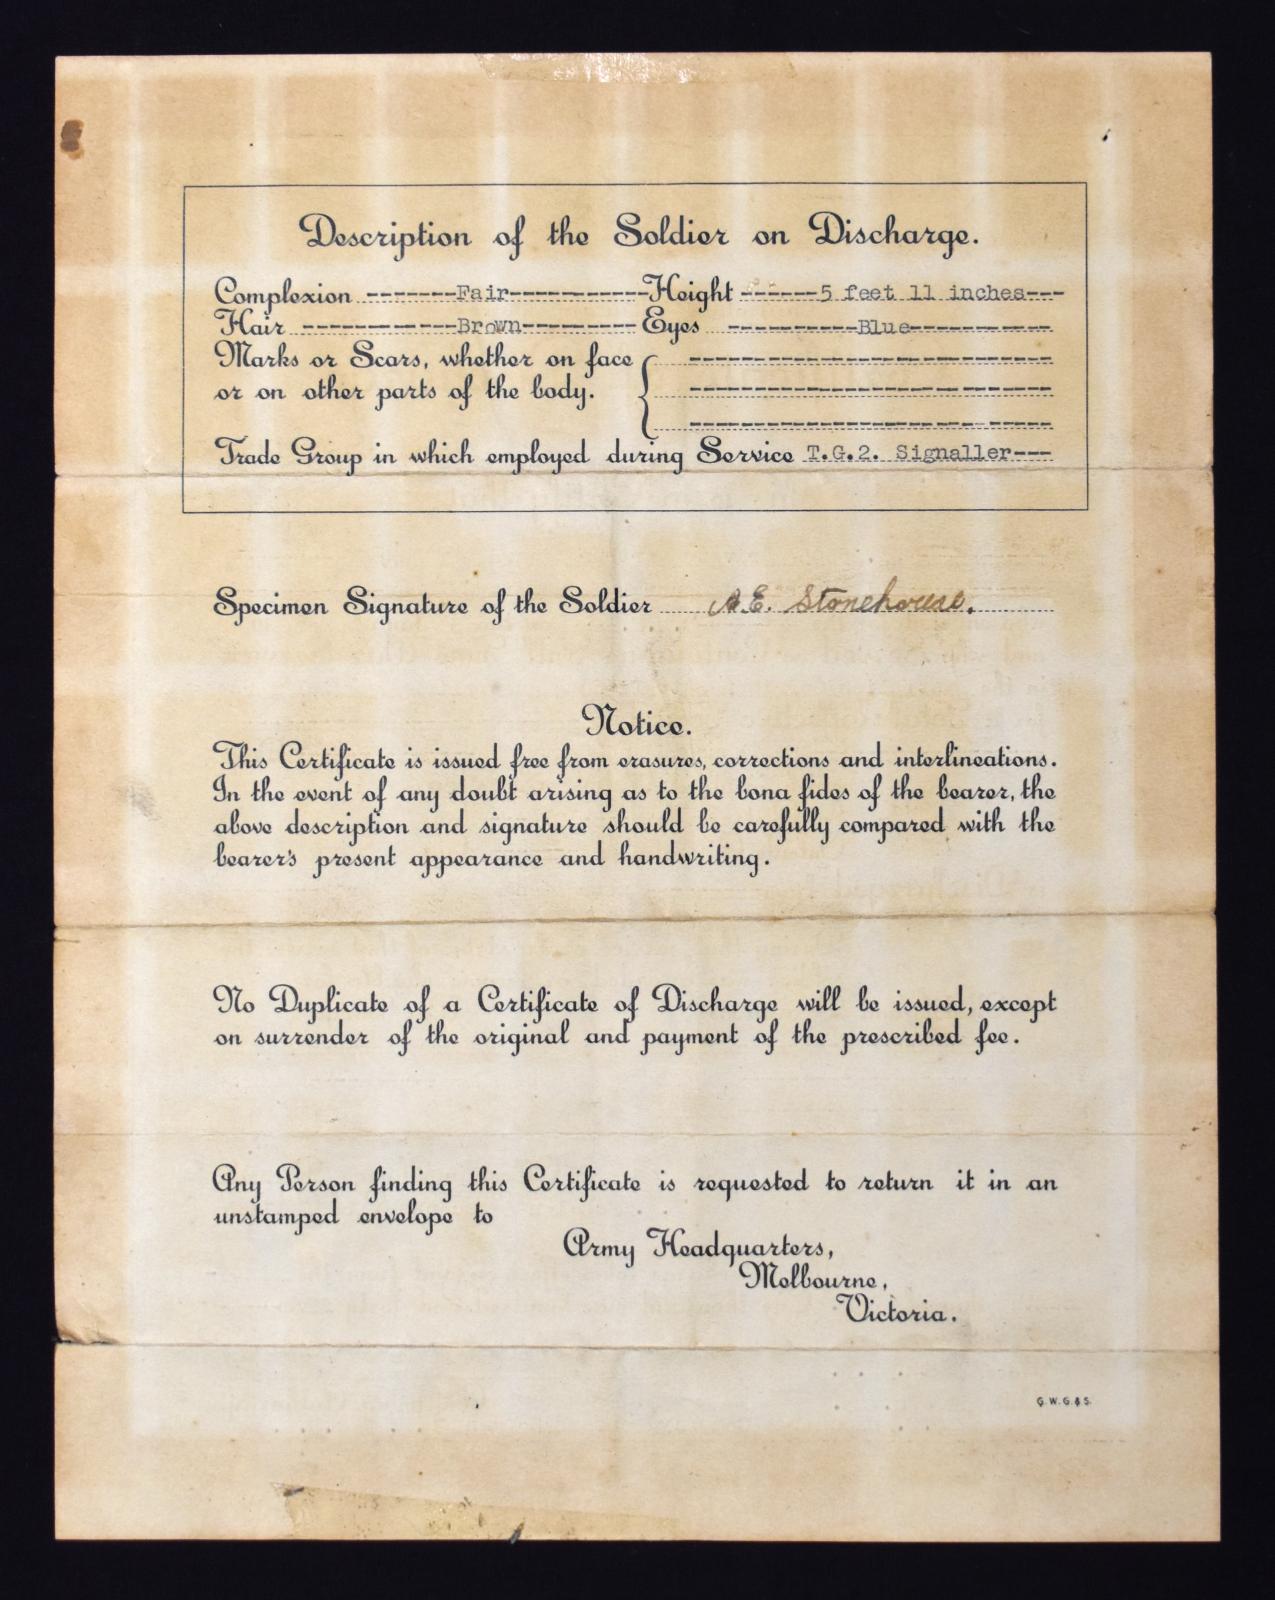 Description of the Soldier on Discharge.
Complexion -------Fair-----------Height ------5 feet 11 inches---
Hair ------------Brown--------- Eyes ----------Blue-----------
Marks or Scars, whether on face
or on other parts of the body.
Trade Group in which employed during Service T.G.2. Signaller---
Specimen Signature of the Soldier A.E. Stonehouse.
Notice.
This Certificate is issued free from erasures, corrections and interlineations.
In the event of any doubt arising as to the bona fides of the bearer, the
above description and signature should be carefully compared with the
bearer's present appearance and handwriting.
No Duplicate of a Certificate of Discharge will be issued, except
on surrender of the original and payment of the prescribed fee.
Any Person finding this Certificate is requested to return it in an
unstamped envelope to
Army Headquarters,
Melbourne,
Victoria.
G.W.G.&S.